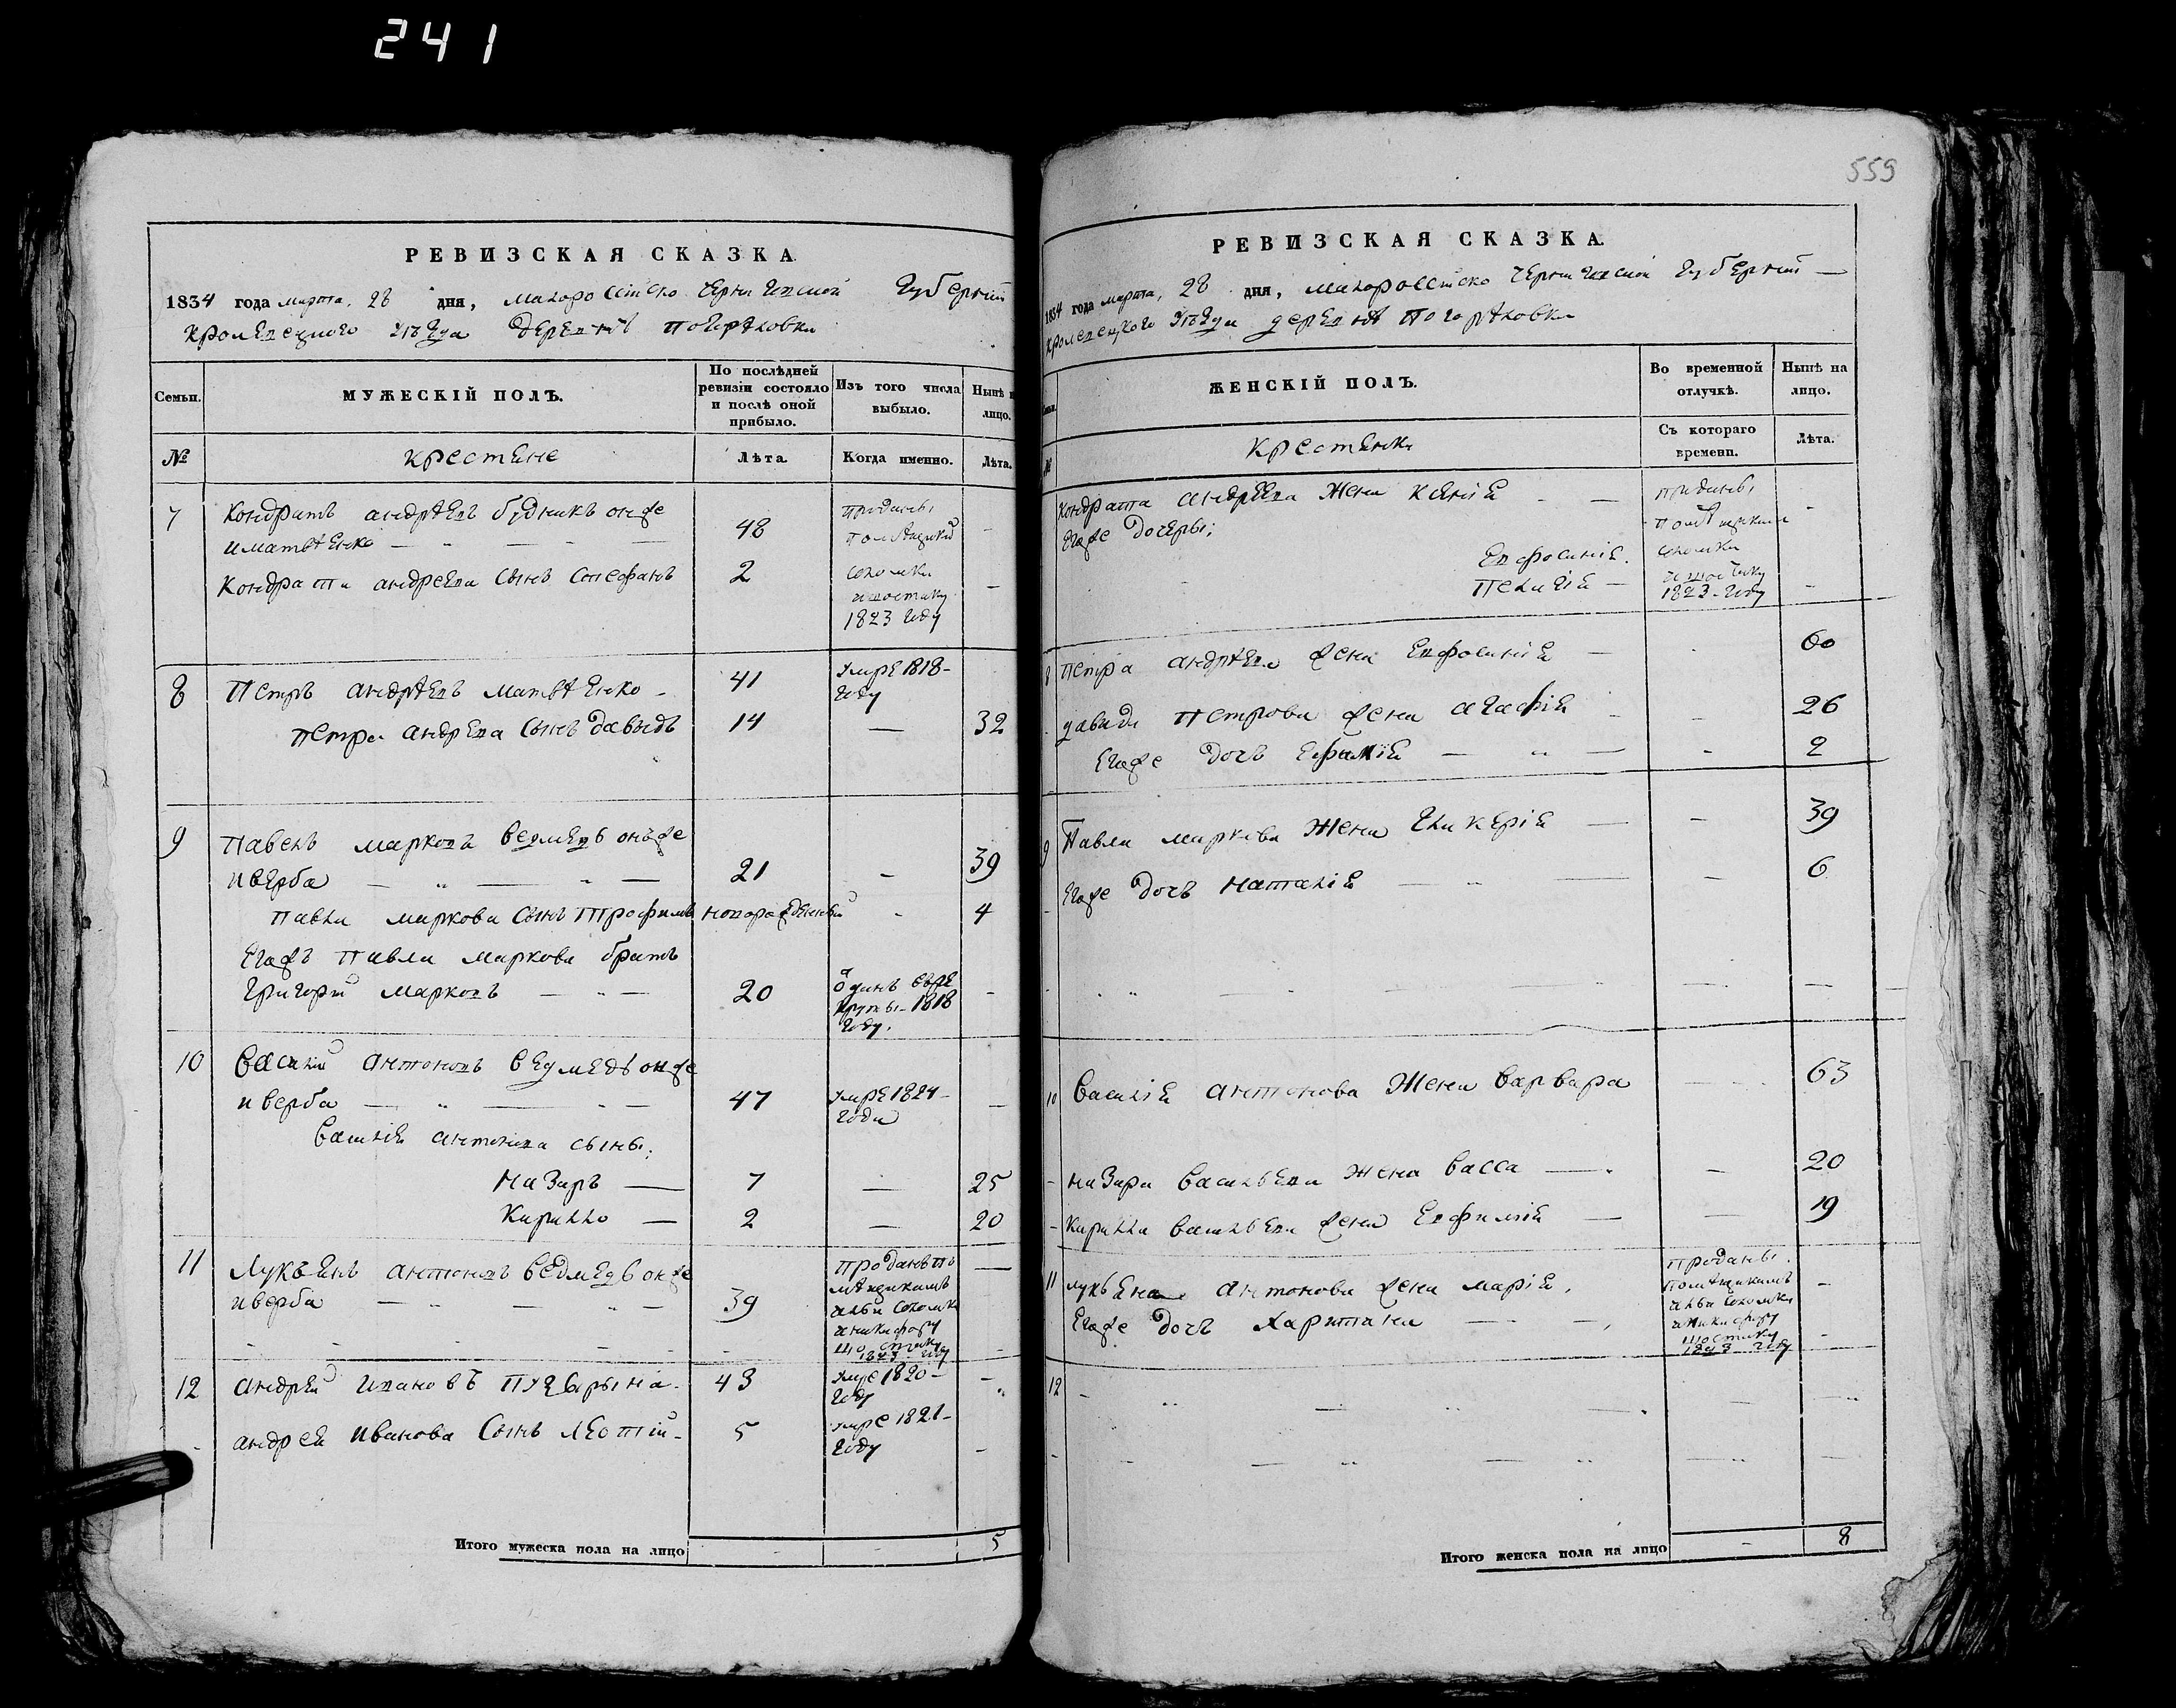 241
559
РЕВИЗСКАЯ СКАЗКА.
1834 года марта, 28 дня, малороссийско Черниговской Губернии
Кролевецкого уезда деревни Погорѣловки
Семьи.
МУЖЕСКІЙ ПОЛЪ.
По послѣдней
ревизіи состояло
и послѣ оной
прибыло.
Изъ того числа
выбыло.
Нынѣ н
лицо.
№
крестяне
Лѣта.
Когда именно.
Лѣта.
7 Кондратъ андрѣевъ будникъ онже
иматвѣенко 48 -
Кондрата андреева сынъ Стефанъ 2 -
проданы
помѣщики
соломки
ишостаку
1823 году
8 Петръ андрѣевъ матвѣенко - 41 умре 1818-
году
петра андреева сынъ давыдъ 14 — 32
9 Павелъ марковъ ведмедь онъже
иверба 21 - 39
павла маркова сынъ Трофимъ новорожденный - 4
Егожъ павла маркова братъ
григорий марковъ 20 -
1818
году.
10 Василий антоновъ ведмедь онже
иверба 47 умре 1824-
года
василия антонова сыны:
Назаръ — 7 — 25
Кирилло — 2 — 20
11 Лукьянъ антоновъ ведмедь онже
иверба 39
проданъ по
мѣщикамъ
соломки
иникифору
шостаку
1823 году
12 андрей ивановъ 43 умре 1820-
году
андрея иванова сынъ леонтий - 5 умре 1821-
году
Итого мужеска пола на лицо - - 5
РЕВИЗСКАЯ СКАЗКА.
1834 года марта, 28 дня, малороссийско черниговской губернии —
кролевецкого уезда деревнѣ погорѣловки
ЖЕНСКІЙ ПОЛЪ.
Во временной
отлучкѣ.
Нынѣ на
лицо.
№
крестянки
Съ котораго
времени.
Лѣта.
Кондрата андреева жена ксения - —
Егоже дочеры:
Евфосиния.
Пелагия —
проданы
помѣщикам
соломки
ишостаку
1823-году
8 Петра андрѣева жена евфосиния — - 60
давида петрова жена агафия - - 26
Егоже дочъ ефимия — „ — - 2
9 Павла маркова жена гликерия — - 39
Егоже дочъ наталия — - 6
10 Василия антонова жена варвара 63
- назара васильева жена васса — - 20
- кирилла васильева жена евфимия — — 19
11 лукьяна антонова жена мария.
Егоже дочъ харитана
проданы.
помѣщикамъ
соломки
иникифору
шостаку
1823 году
12
Итого женска пола на лицо - 8